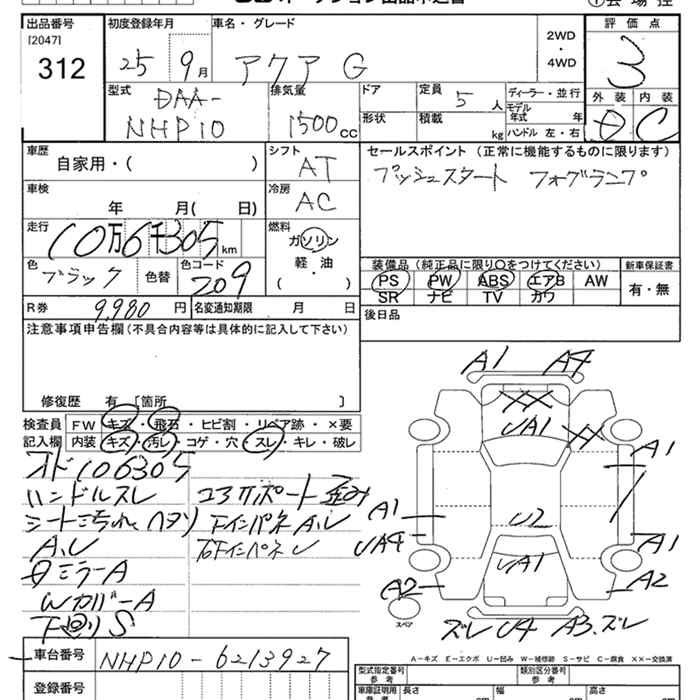 出品番号
[2047]
312
初度登録年月
25年 9月
車名・グレード
アクア G
2WD
・
4WD
評価点
3
外装 内装
C
型式
DAA-
NHP10
排気量
1500cc
ドア
形状
定員
5人
積載
kg
ディーラー・並行
モデル
年式 年
ハンドル 左・右
車歴
自家用・( )
シフト
AT
セールスポイント (正常に機能するものに限ります)
プッシュスタート フォグランプ
車検
年 月( 日)
冷房
AC
走行
10万6千305km
燃料
ガソリン
軽・油
( )
色
ブラック
色替
色コード
209
装備品 (純正品に限り○をつけてください)
新車保証書
PS PW ABS エアB AW
有・無
SR ナビ TV カワ
R券
9,980円
名変通知期限 月 日
後日品
注意事項申告欄(不具合内容等は具体的に記入して下さい)
修復歴 有 [箇所 ]
検査員
記入欄
FW キズ・飛石・ヒビ割・リペア跡・×要
内装 キズ・汚レ・コゲ・穴・スレ・キレ・破レ
オド106305
ハンドルスレ
コアサポート歪み
シート汚れ ヘタリ
下インパネA,レ
A,レ
右下インパネレ
ミラーA
Wカバー A
下回りS
A1 A4
XX
UA1
XX
A1
A1
UA4
U2
A1
UA1
A2
A2
スペア
ズレ U4 A3、ズレ
A-キズ E-エクボ U-凹み W-補修跡 S-サビ C-腐食 XX-交換済
車台番号
NHP10-6213927
登録番号
型式指定番号
参考
類別区分番号
参考
車庫証明用
参考
長さ
幅
高さ